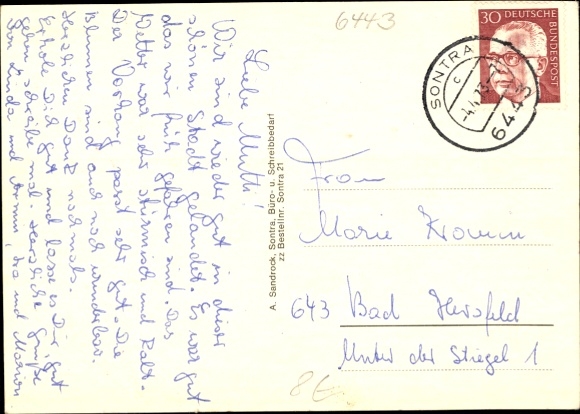 Liebe Mutti!
Wir sind wieder gut in dieser
schönen Stadt gelandet. Es war gut
das wir früh gefahren sind. Das
Wetter war sehr stürmisch und kalt.
Der Vorhang passt sehr gut. Die
Blumen sind auch noch wunderbar.
Herzlichen Dank nochmals.
Erhole Dich gut und lasse es Dir gut
gehn schreibe mal. Herzliche Grüße
von Linda und Armin, und Marion
A. Sandrock, Sontra, Büro- u. Schreibbedarf
zz Bestellnr. Sontra 21
6443
30 DEUTSCHE
BUNDESPOST
SONTRA
c
6443
Frau
Marie
643 Bad Hersfeld
Unter der Stiegel 1
8€